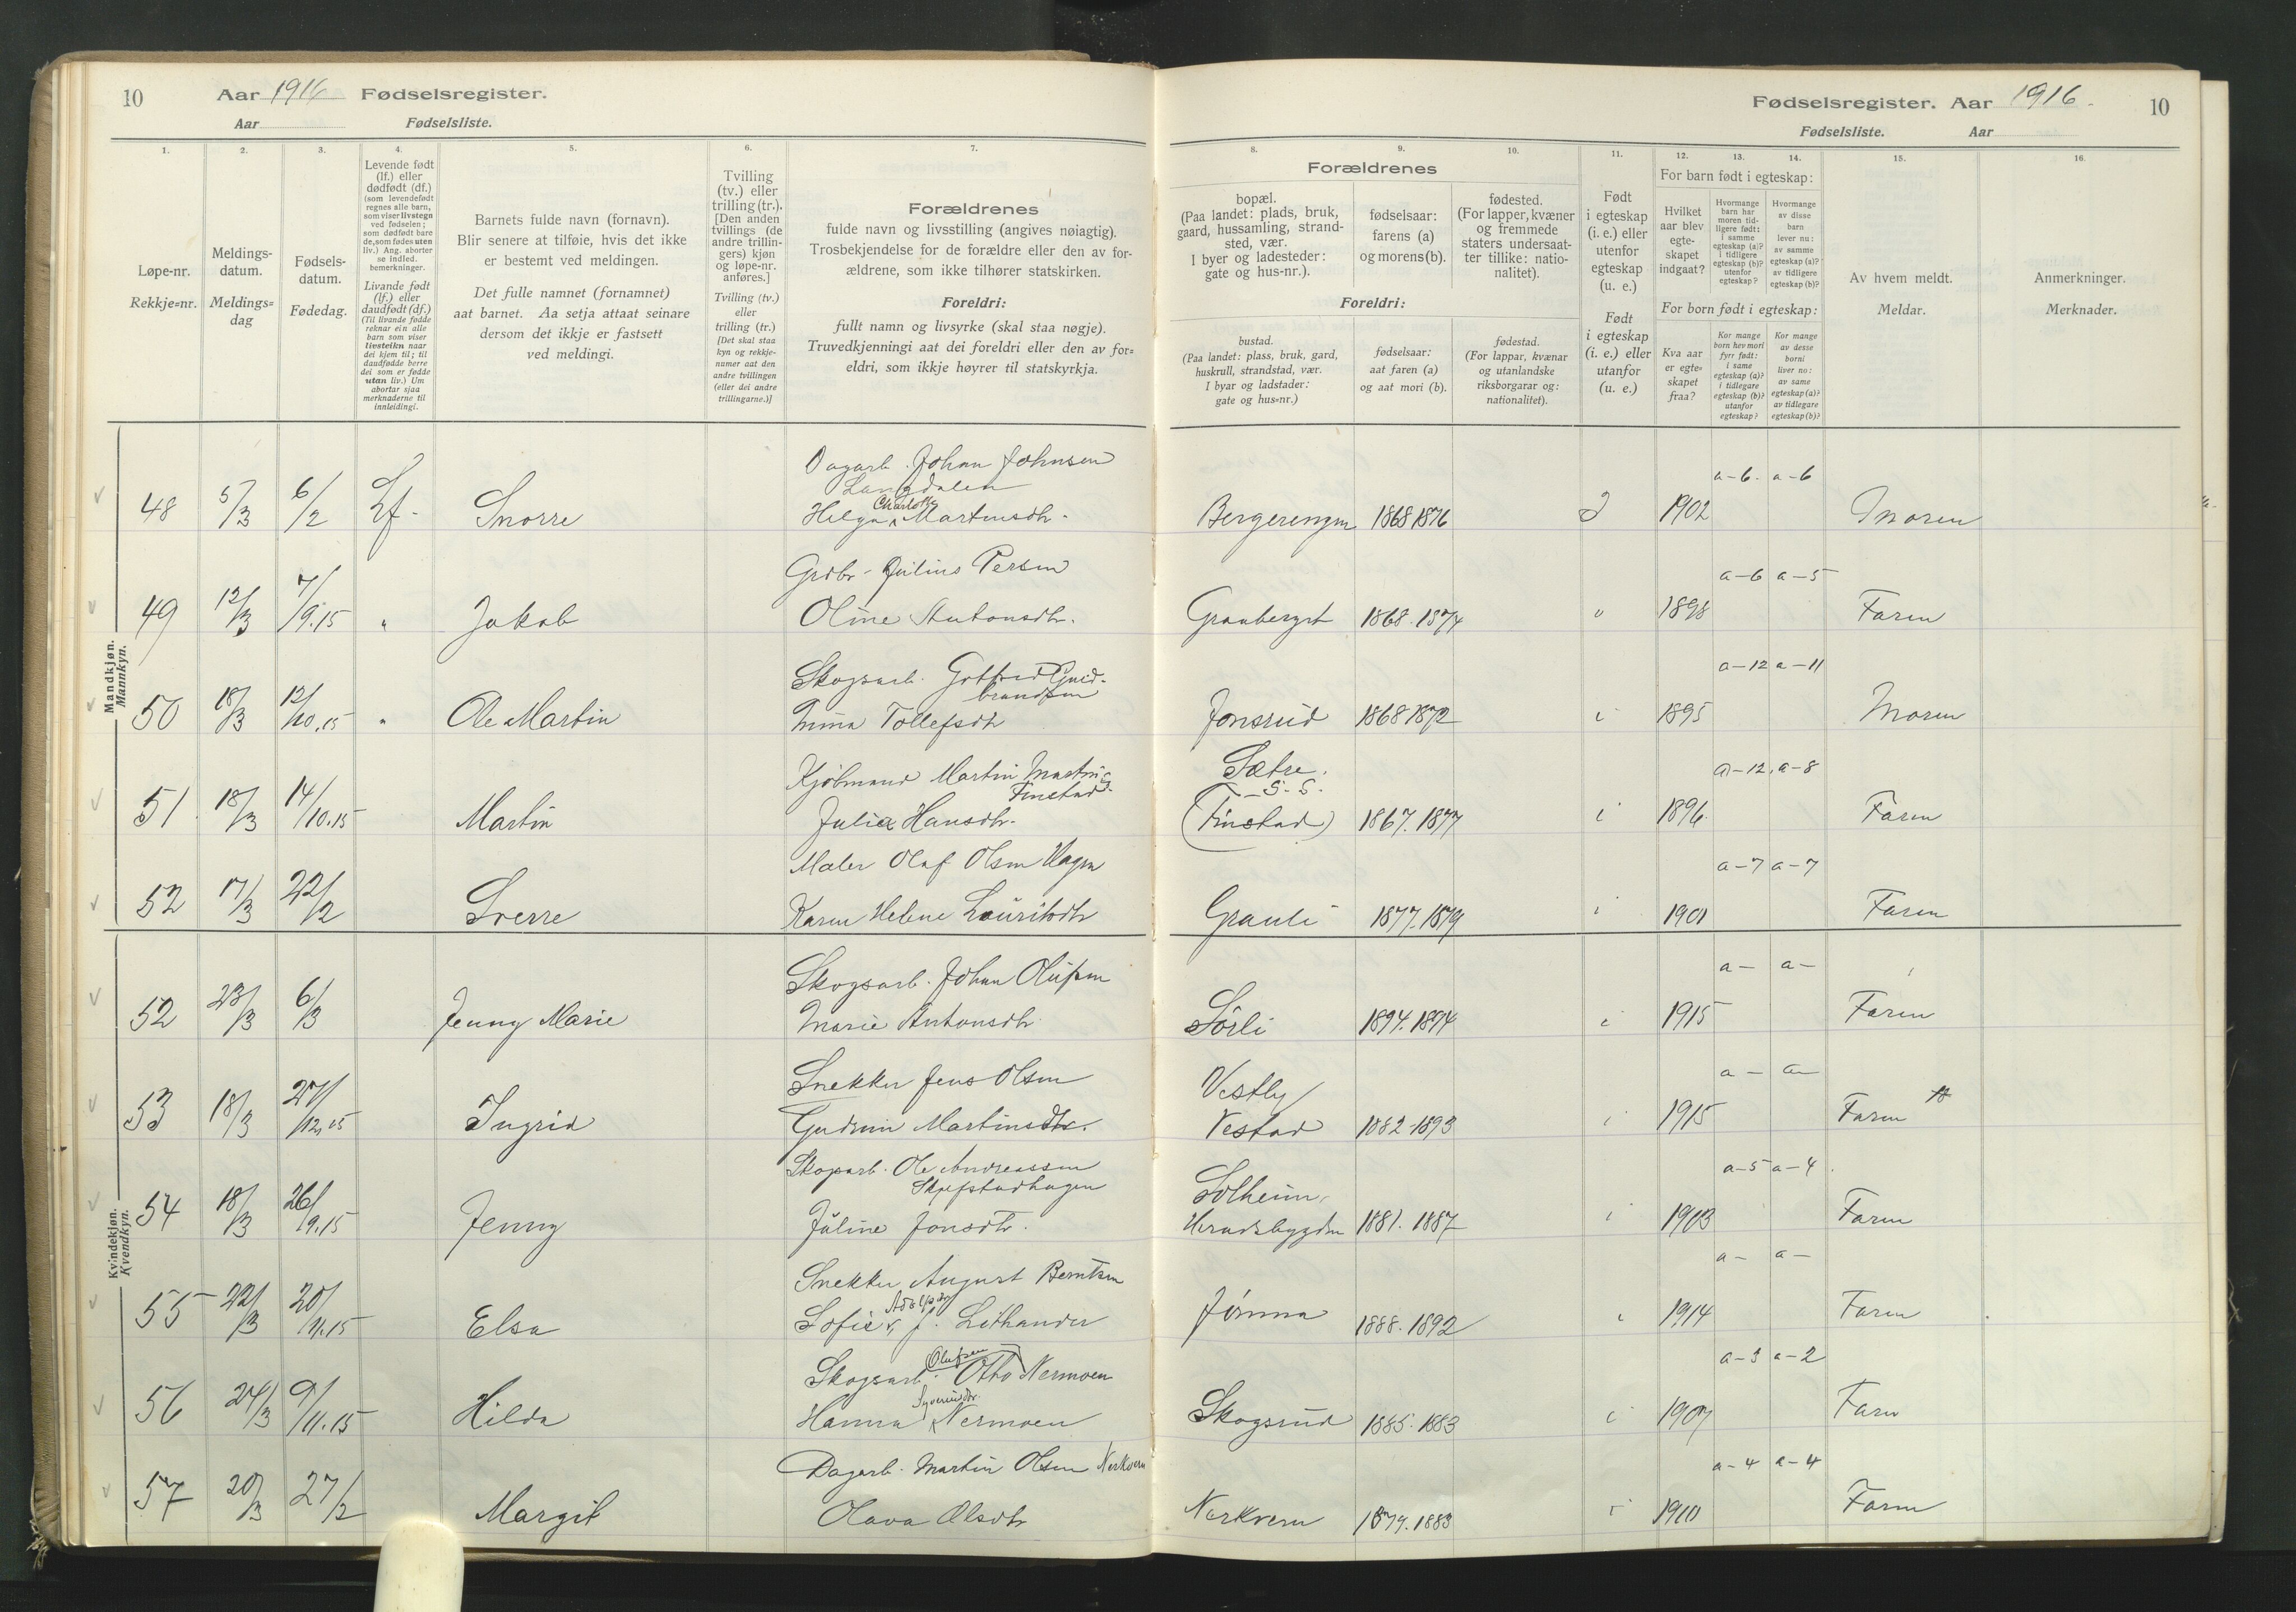 10 Aar 1916 Fødselsregister.
Aar Fødselsliste.
Fødselsregister. Aar 1916. 10
Fødselsliste. Aar
1. 2. 3. 4. 5. 6. 7.
Løpe-nr.
Rekkje=nr.
Meldings-
datum.
Meldings=
dag
Fødsels-
datum.
Fødedag.
Levende født
(lf.) eller
dødfødt (df.)
(som levendefødt
regnes alle barn,
som viser livstegn
ved fødselen;
som dødfødt bare
de, som fødes uten
liv.) Ang. aborter
se indled.
bemerkninger.
Livande født
(lf.) eller
daudfødt (df.)
(Til livande fødde
reknar ein alle
barn som viser
livsteikn naar
dei kjem til; til
daudfødde berre
dei som er fødde
utan liv.) Um
abortar sjaa
merknaderne til
innleidingi.
Barnets fulde navn (fornavn).
Blir senere at tilføie, hvis det ikke
er bestemt ved meldingen.
Det fulle namnet (fornamnet)
aat barnet. Aa setja attaat seinare
dersom det ikkje er fastsett
ved meldingi.
Tvilling
(tv.) eller
trilling (tr.).
[Den anden
tvillings (de
andre trillin-
gers) kjøn
og løpe-nr.
anføres.]
Tvilling (tv.)
eller
trilling (tr.)
[Det skal staa
kyn og rekkje-
numer aat den
andre tvillingen
(eller dei andre
trillingarne.)]
Forældrenes
fulde navn og livsstilling (angives nøiagtig).
Trosbekjendelse for de forældre eller den av for-
ældrene, som ikke tilhører statskirken.
Foreldri:
fullt namn og livsyrke (skal staa nøgje).
Truvedkjenningi aat dei foreldri eller den av for=
eldri, som ikkje høyrer til statskyrkja.
8. 9. 10. 11. 12. 13. 14. 15. 16.
Forældrenes
bopæl.
(Paa landet: plads, bruk,
gaard, hussamling, strand-
sted, vær.
I byer og ladesteder:
gate og hus-nr.).
fødselsaar:
farens (a)
og morens (b).
fødested.
(For lapper, kvæner
og fremmede
staters undersaat-
ter tillike: natio-
nalitet).
Foreldri:
bustad.
(Paa landet: plass, bruk, gard,
huskrull, strandstad, vær.
I byar og ladstader:
gate og hus=nr.)
fødselsaar:
aat faren (a)
og aat mori (b).
fødestad.
(For lappar, kvænar
og utanlandske
riksborgarar og:
nationalitet).
Født
i egteskap
(i. e.) eller
utenfor
egteskap
(u. e.)
Født
i egteskap
(i. e.) eller
utanfor
(u. e.)
For barn født i egteskap:
Hvilket
aar blev
egte-
skapet
indgaat?
Hvormange
barn har
moren tid-
ligere født:
i samme
egteskap (a)?
i tidligere
egteskap (b)?
utenfor
egteskap?
Hvormange
av disse
barn
lever nu:
av samme
egteskap (a)?
av tidligere
egteskap (b)?
For born født i egteskap:
Kva aar
er egte=
skapet
fraa?
Kor mange
born hev mori
fyrr født:
i same
egteskap (a)?
i tidlegare
egteskap (b)?
utanfor
egteskap?
Kor mange
av desse
borni
liver no:
av same
egteskap (a)?
av tidlegare
egteskap (b)?
Av hvem meldt.
Meldar.
Anmerkninger.
Merknader.
Mandkjøn.
Mannkyn.
Dagarb. Johan Johnsen
Langdalen
a-6. a-6
48 5/3 6/2 Lf. Snorre Helga Charlotte Martinsdtr. Bergerengen 1868 1876 J 1902 Moren
Grdbr. Julius Persen a-6 a-5
49 12/3 7/9.15 " Jakob Oline Antonsdtr. Granberget 1868. 1874 " 1898 Faren
Skogsarb. Gottfred Gud-
brandsen a-12 a-11
50 18/3 12/10.15 " Ole Martin Inina Tollefsdtr Jonsrud 1868 1872 i 1895 Moren
Kjøbmand Martin Martins. Sætre. a-12. a-8
Finstad S. S.
51. 18/3 14/10.15 Martin Julia Hansdtr. (Finstad) 1867. 1877 i 1896. Faren
Maler Olaf Olsen Hagen a-7 a-7
52 17/3 22/2 Sverre Karen Helene Lauritsdtr Granli 1877. 1879 i 1901 Faren
Kvindekjøn.
Kvendkyn.
Skogsarb. Johan Olufsen a- a-
52 23/3 6/3 Jenny Marie Marie Antonsdtr. Sörli 1894. 1894 i 1915 Faren
Snekker Jens Olsen Vestby a- a-
53 18/3 27/12.15 Ingrid Gudrun Martinsdtr. Vestad 1882-1893 i 1915 Faren
Skogarb. Ole Andreassen a-5 a-4.
Skjefstadhagen Solheim,
54 18/3 26/9.15 Jenny Juline Jonsdtr. Heradsbygden 1881. 1887 i 1903 Faren
Snekker August Berntsen a- a-
55 22/3 20/11.15 Elsa Sofie J. Lithander Jömna 1888. 1892 i 1914 Faren
Skogsarb. Olufsen Otto Nermoen a-3 a-2
56 24/3 9/11.15 Hilda Hanna Syverindtr. Nermoen Skogsrud 1885. 1883 i 1907 Faren
Dagarb. Martin Olsen Nerkvern a-4 a-4
57 20/3 27/2 Margit Olava Olsdtr Nerkvern 1879. 1883 i 1910 Faren